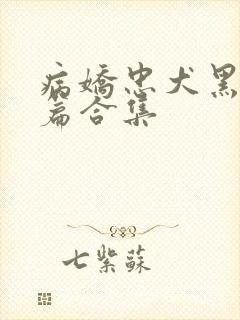 病嬌忠犬黑
篇合集
七紫蘇